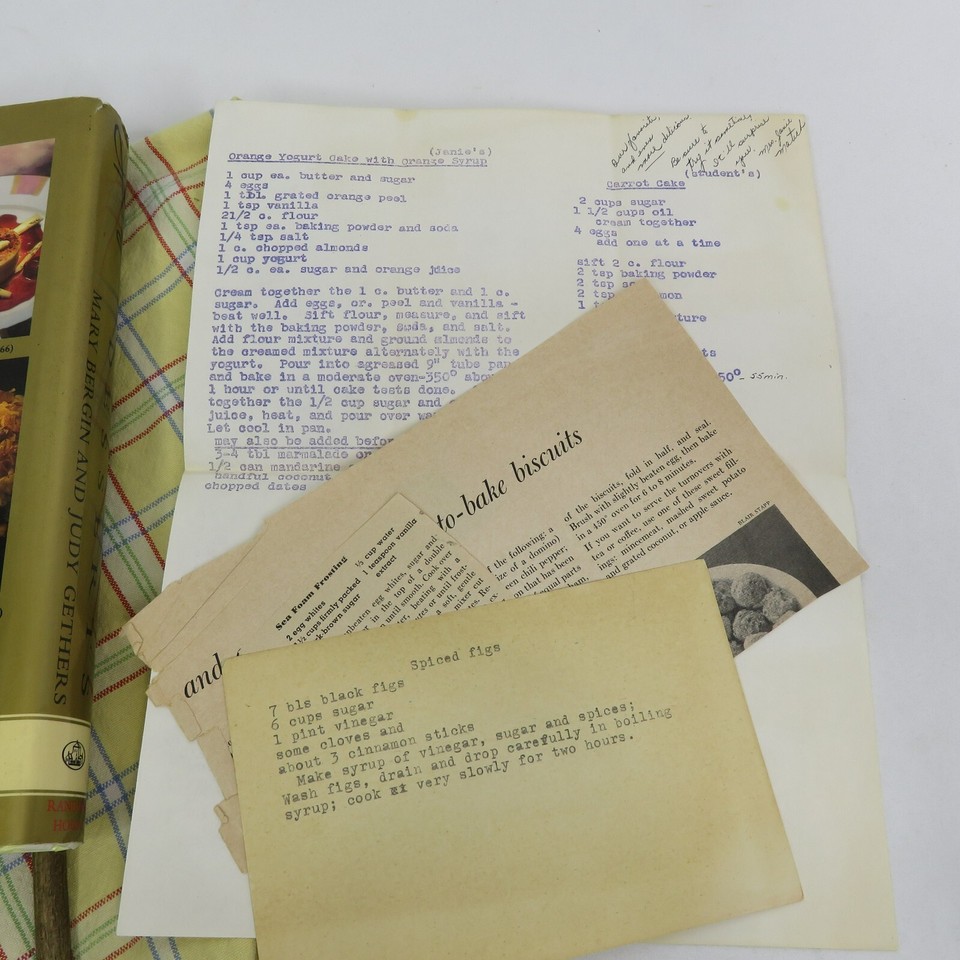 (Janie's)
Orange Yogurt Cake with Orange Syrup
1 cup ea. butter and sugar
4 eggs
1 tbl. grated orange peel
1 tsp vanilla
21/2 c. flour
1 tsp ea. baking powder and soda
1/4 tsp salt
1 c. chopped almonds
1 cup yogurt
1/2 c. ea. sugar and orange jdice
Cream together the 1 c. butter and 1 c.
sugar. Add eggs, or. peel and vanilla -
beat well. Sift flour, measure, and sift
with the baking powder, soda, and salt.
Add flour mixture and ground almonds to
the creamed mixture alternately with the
yogurt. Pour into agreased 9" tube pan
and bake in a moderate oven-350° abo
1 hour or until cake tests done.
together the 1/2 cup sugar and
juice, heat, and pour over wa
Let cool in pan.
may also be added befor
3-4 tbl marmalade or
1/2 can mandarine
handful coconut
chopped dates
and more delicious
Be sure to
try it sometime,
it'll surprise
you. Mrs. Janie
(student's)
Carrot Cake
2 cups sugar
1 1/2 cups oil
cream together
4 eggs
add one at a time
sift 2 c. flour
2 tsp baking powder
2 tsp so
2 tsp mon
1 t
ture
ts
50°- 55 min.
to-bake biscuits
and
of the biscuits, fold in half, and seal.
Brush with slightly beaten egg, then bake
in a 450° oven for 6 to 8 minutes.
If you want to serve the turnovers with
tea or coffee, use one of these sweet fill-
ings: mincemeat, mashed sweet potato
and grated coconut, or apple sauce.
BLAIR STAPP
the following: a
ize of a domino)
een chili pepper,
on that has been
equal parts
ham,
Sea Foam Frosting
2 egg whites
1½ cups firmly packed
k-brown sugar
⅓ cup water
1 teaspoon vanilla
extract
nbeaten egg whites, sugar and
r in the top of a double
until smooth. Cook over
r, beating with a
utes or until frost-
a soft, gentle
mixer cut
es. Re-
Spiced figs
7 bls black figs
6 cups sugar
1 pint vinegar
some cloves and
about 3 cinnamon sticks
Make syrup of vinegar, sugar and spices;
Wash figs, drain and drop carefully in boiling
syrup; cook at very slowly for two hours.
MARY BERGIN AND JUDY GETHERS
66)